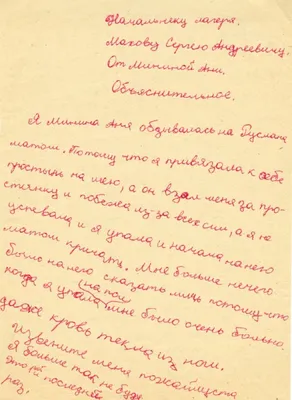 Начальнику лагеря.
Махову Сергею Андреевичу.
От Мининой Ани.
Объяснительное.
Я Минина Аня обзывалась на Руслана
матом. Потому что я привязала к себе
простынь на шею, а он взял меня за про-
стынку и побежал изза всех сил, а я не
успевала и я упала и начала на него
матом кричать. Мне больше нечего
было на него сказать лишь потому что
когда я упала (на пол) мне было очень больно.
даже кровь текла из ног.
Извените меня пожалуста
Я больше так не буду
Это в последней
раз.